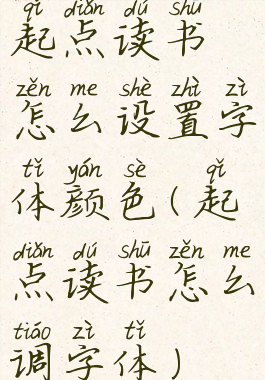 qǐ diǎn dú shū
起点读书
zěn me shè zhì zì
怎么设置字
tǐ yán sè qǐ
体颜色(起
diǎn dú shū zěn me
点读书怎么
tiáo zì tǐ
调字体)